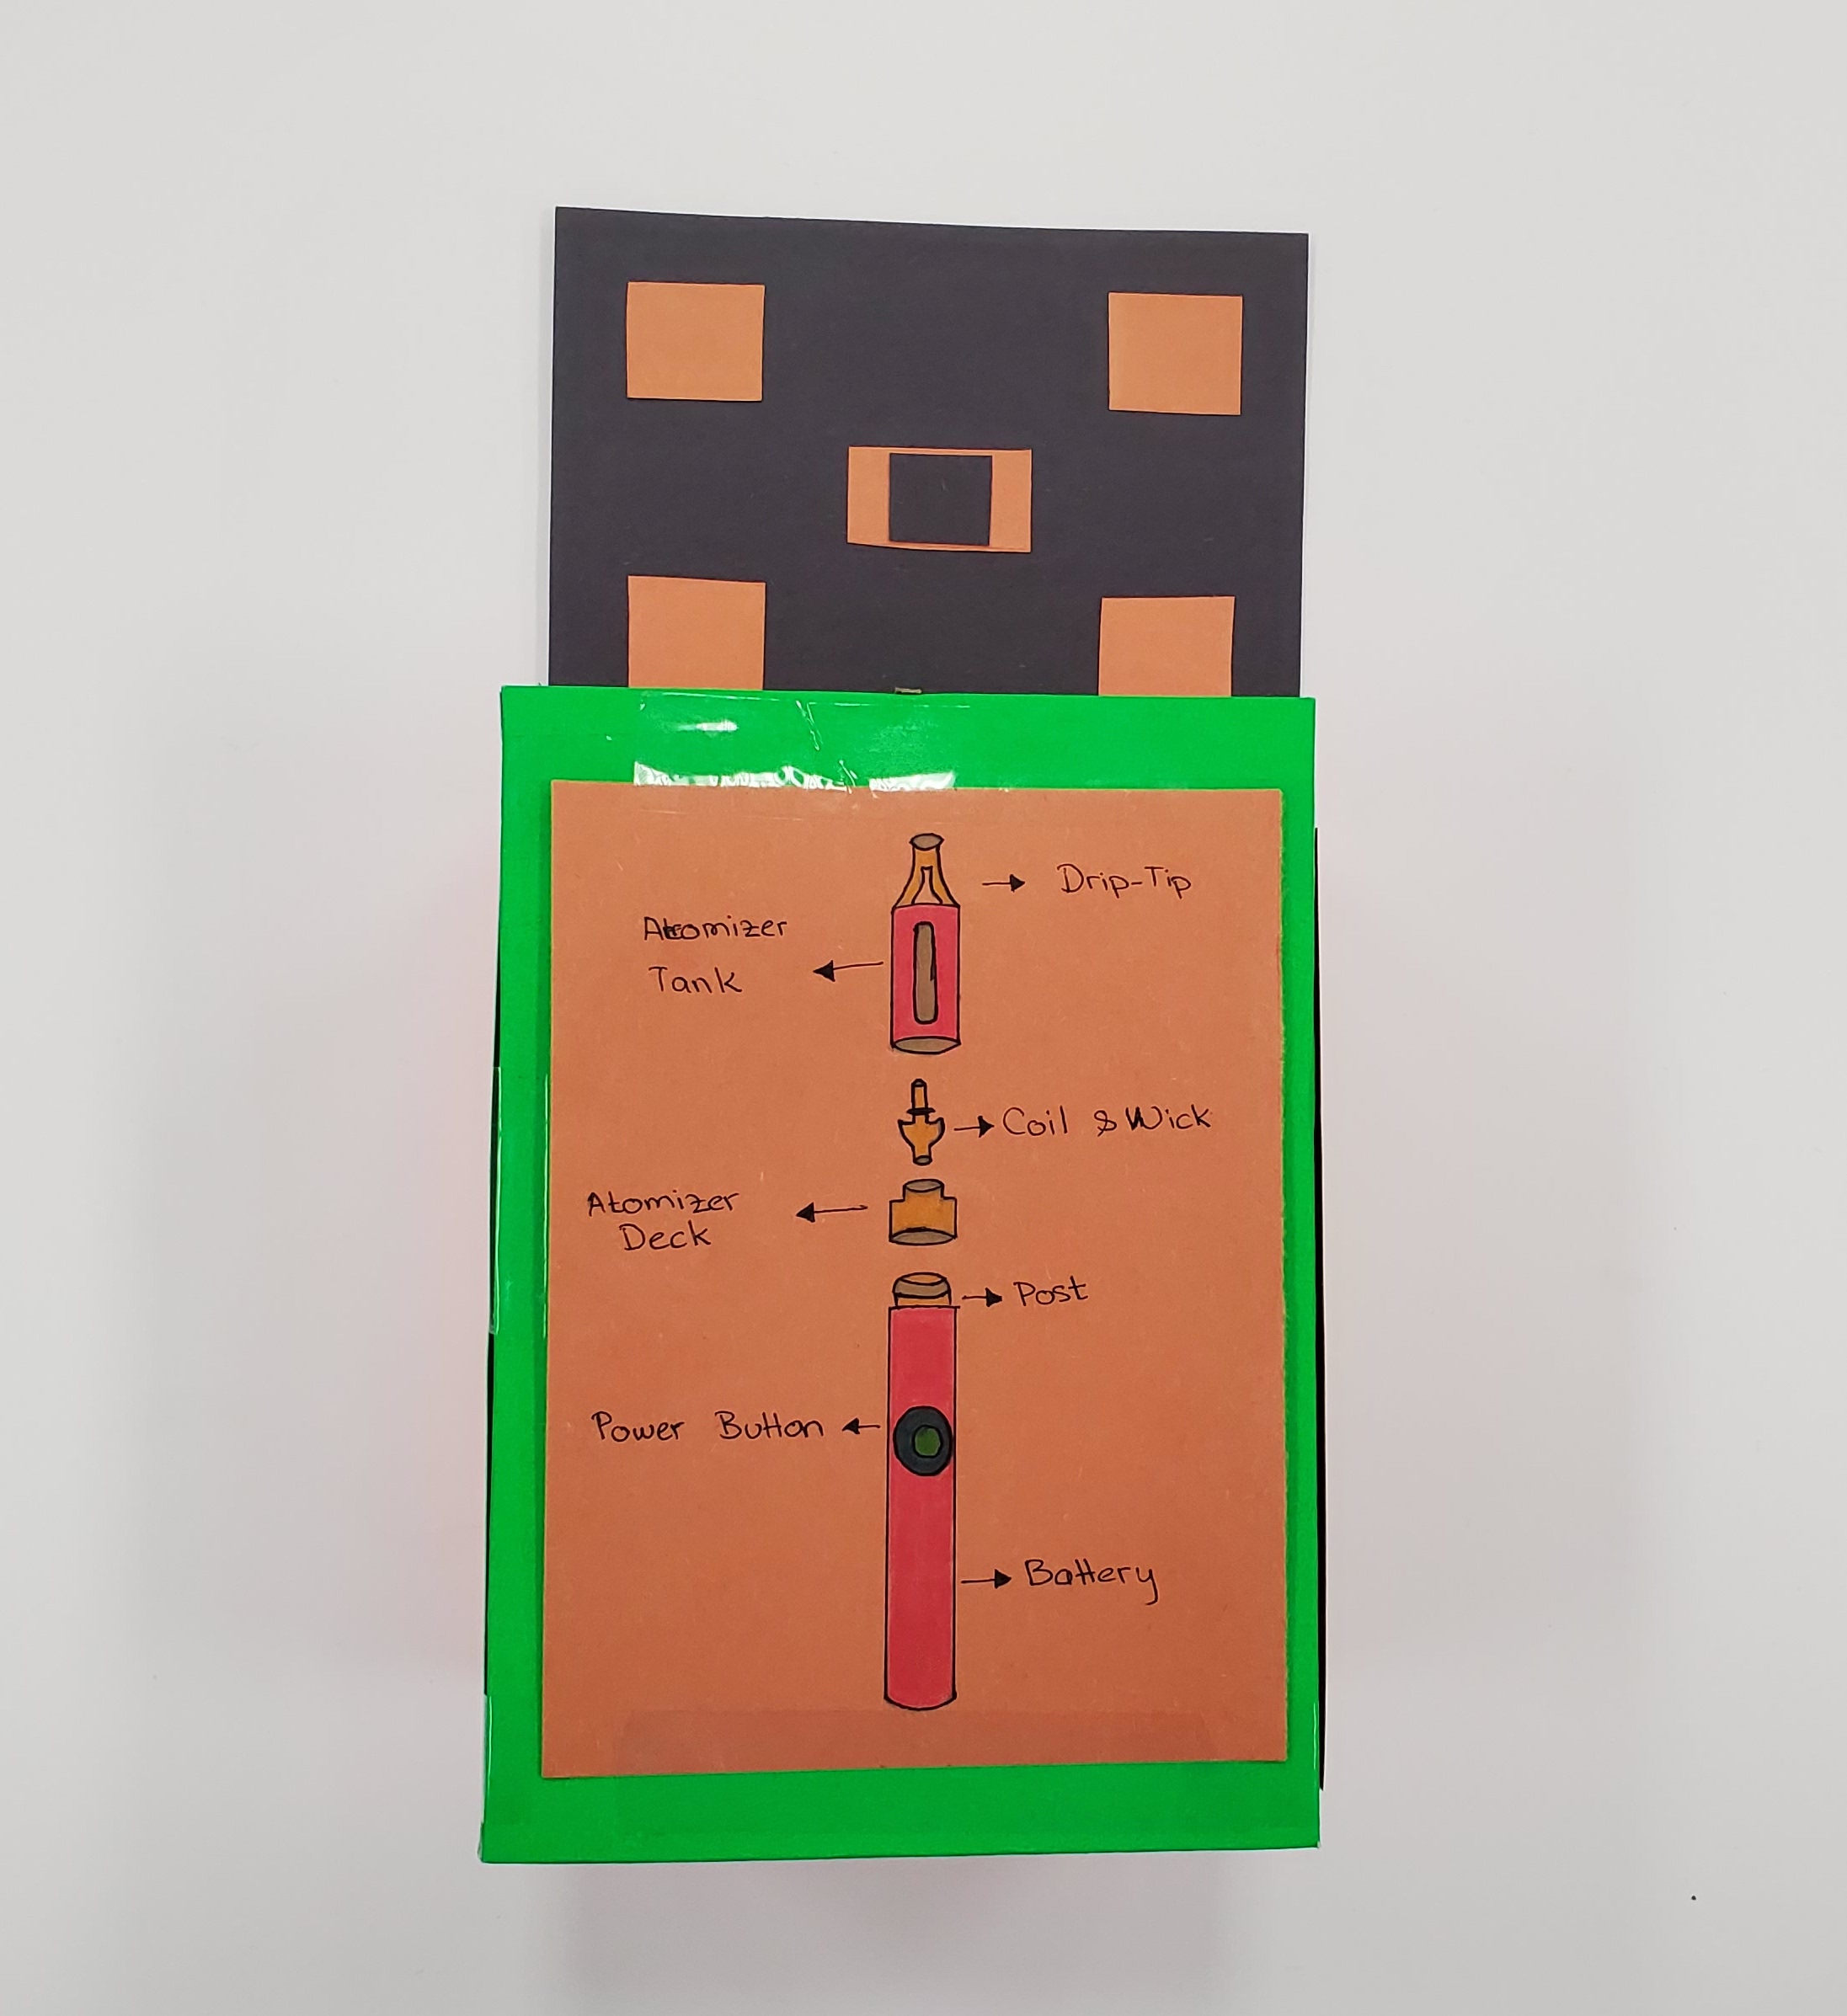 Drip-Tip
Atomizer
Tank
Coil & Wick
Atomizer
Deck
Post
Power Button
Battery